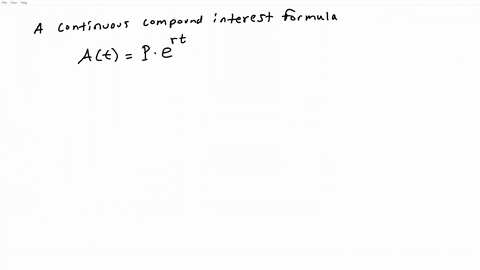 File View Help
A continuous compound interest formula
A(t) = P · e^{rt}